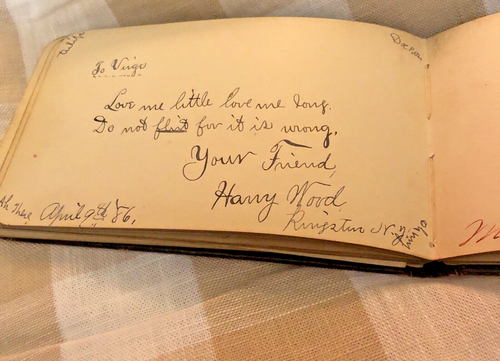 To Virge
Love me little love me long.
Do not flirt for it is wrong.
Your Friend,
Harry Wood
Kingston N.Y.
Ah There April 9th '86.